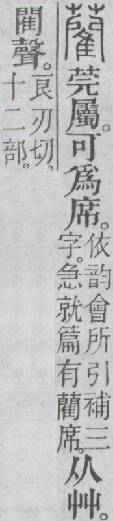 藺莞屬。可爲席。依韵會所引補三
字。急就篇有藺席。从艸。
閵聲。良刃切。
十二部。